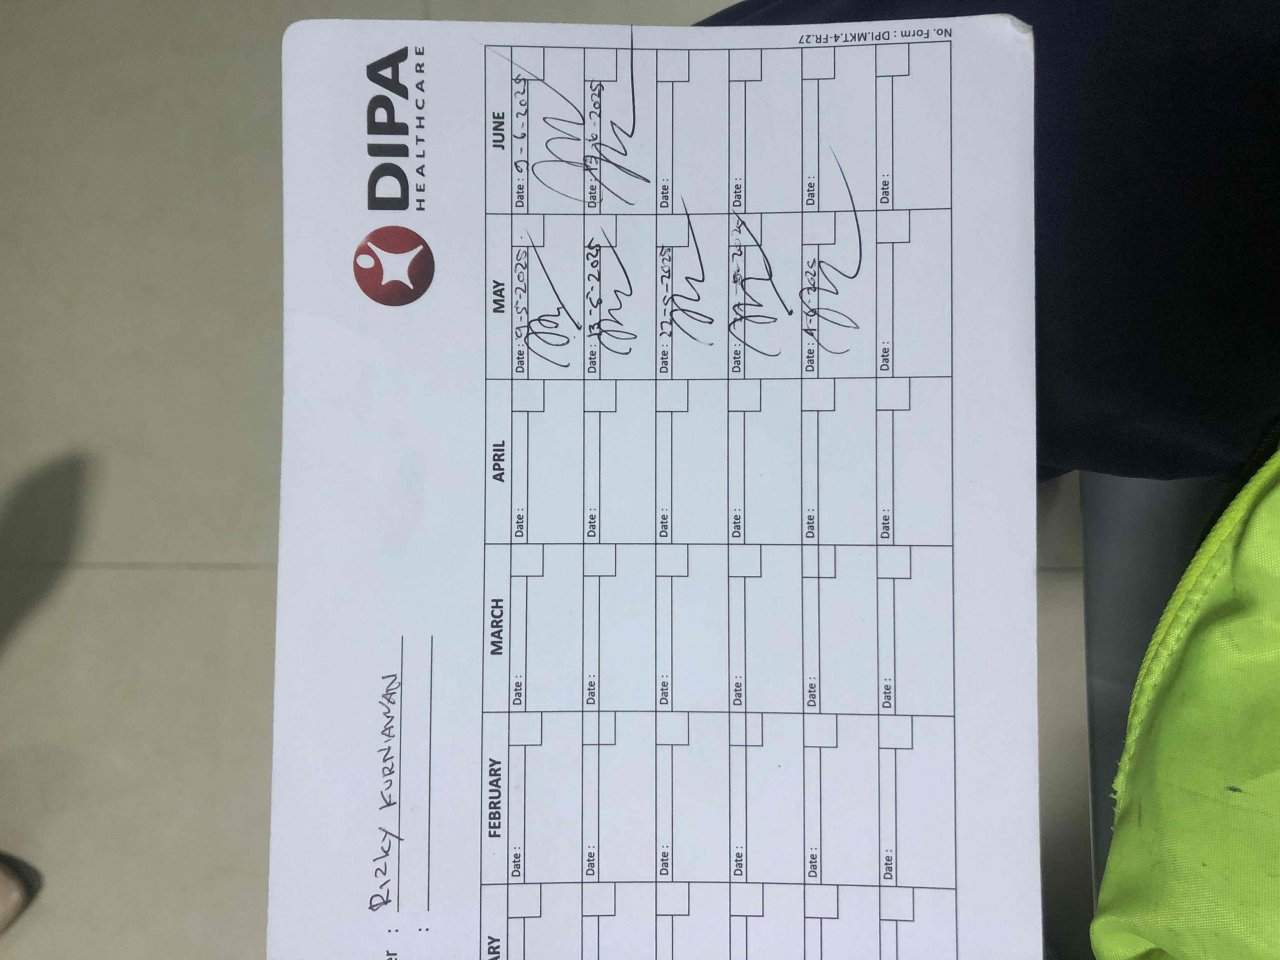 DIPA
HEALTHCARE
er : RIZKY KURNIAWAN
:
ARY FEBRUARY MARCH APRIL MAY JUNE
Date : Date : Date : Date : 9-5-2025 Date : 9-6-2025
Date : Date : Date : Date : 13-5-2025 Date : 13-6-2025
Date : Date : Date : Date : 22-5-2025 Date :
Date : Date : Date : Date : Date :
Date : Date : Date : Date : Date :
Date : Date : Date : Date : Date :
No. Form : DPI.MKT.4-FR.27